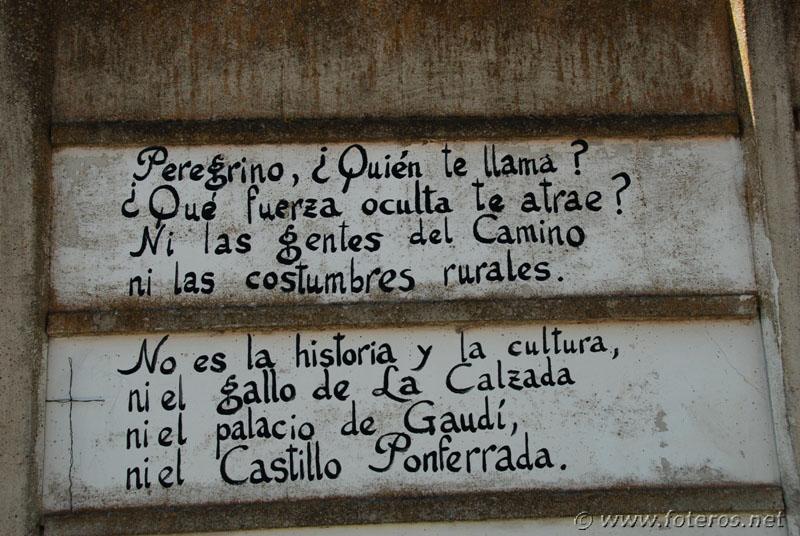 Peregrino, ¿Quién te llama?
¿Qué fuerza oculta te atrae?
Ni las gentes del Camino
ni las costumbres rurales.
No es la historia y la cultura,
ni el gallo de La Calzada
ni el palacio de Gaudí,
ni el Castillo Ponferrada.
© www.foteros.net